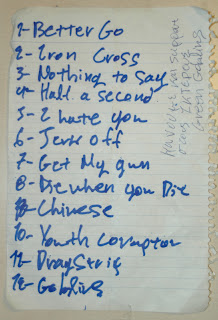 1- Better Go
2- Iron Cross
3- Nothing to say
4- Half a second
5- I hate you
6- Jerk off
7- Get My gun
8- Die when you Die
9- Chinese
10- Youth Corruptor
11- DragStrip
12- Goblins
Green Goblins